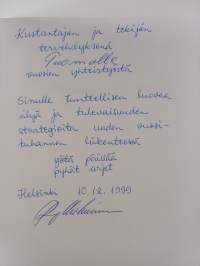 Kustantajan ja tekijän
tervehdyksenä
Tuomolle
vuosien yhteistyöstä
Sinulle tunteellisen luovaa
älyä ja tulevaisuuden
strategioita uuden vuosi-
tuhannen liikenteessä
yötä päivää
pyhät arjet
Helsinki 10.12.1999